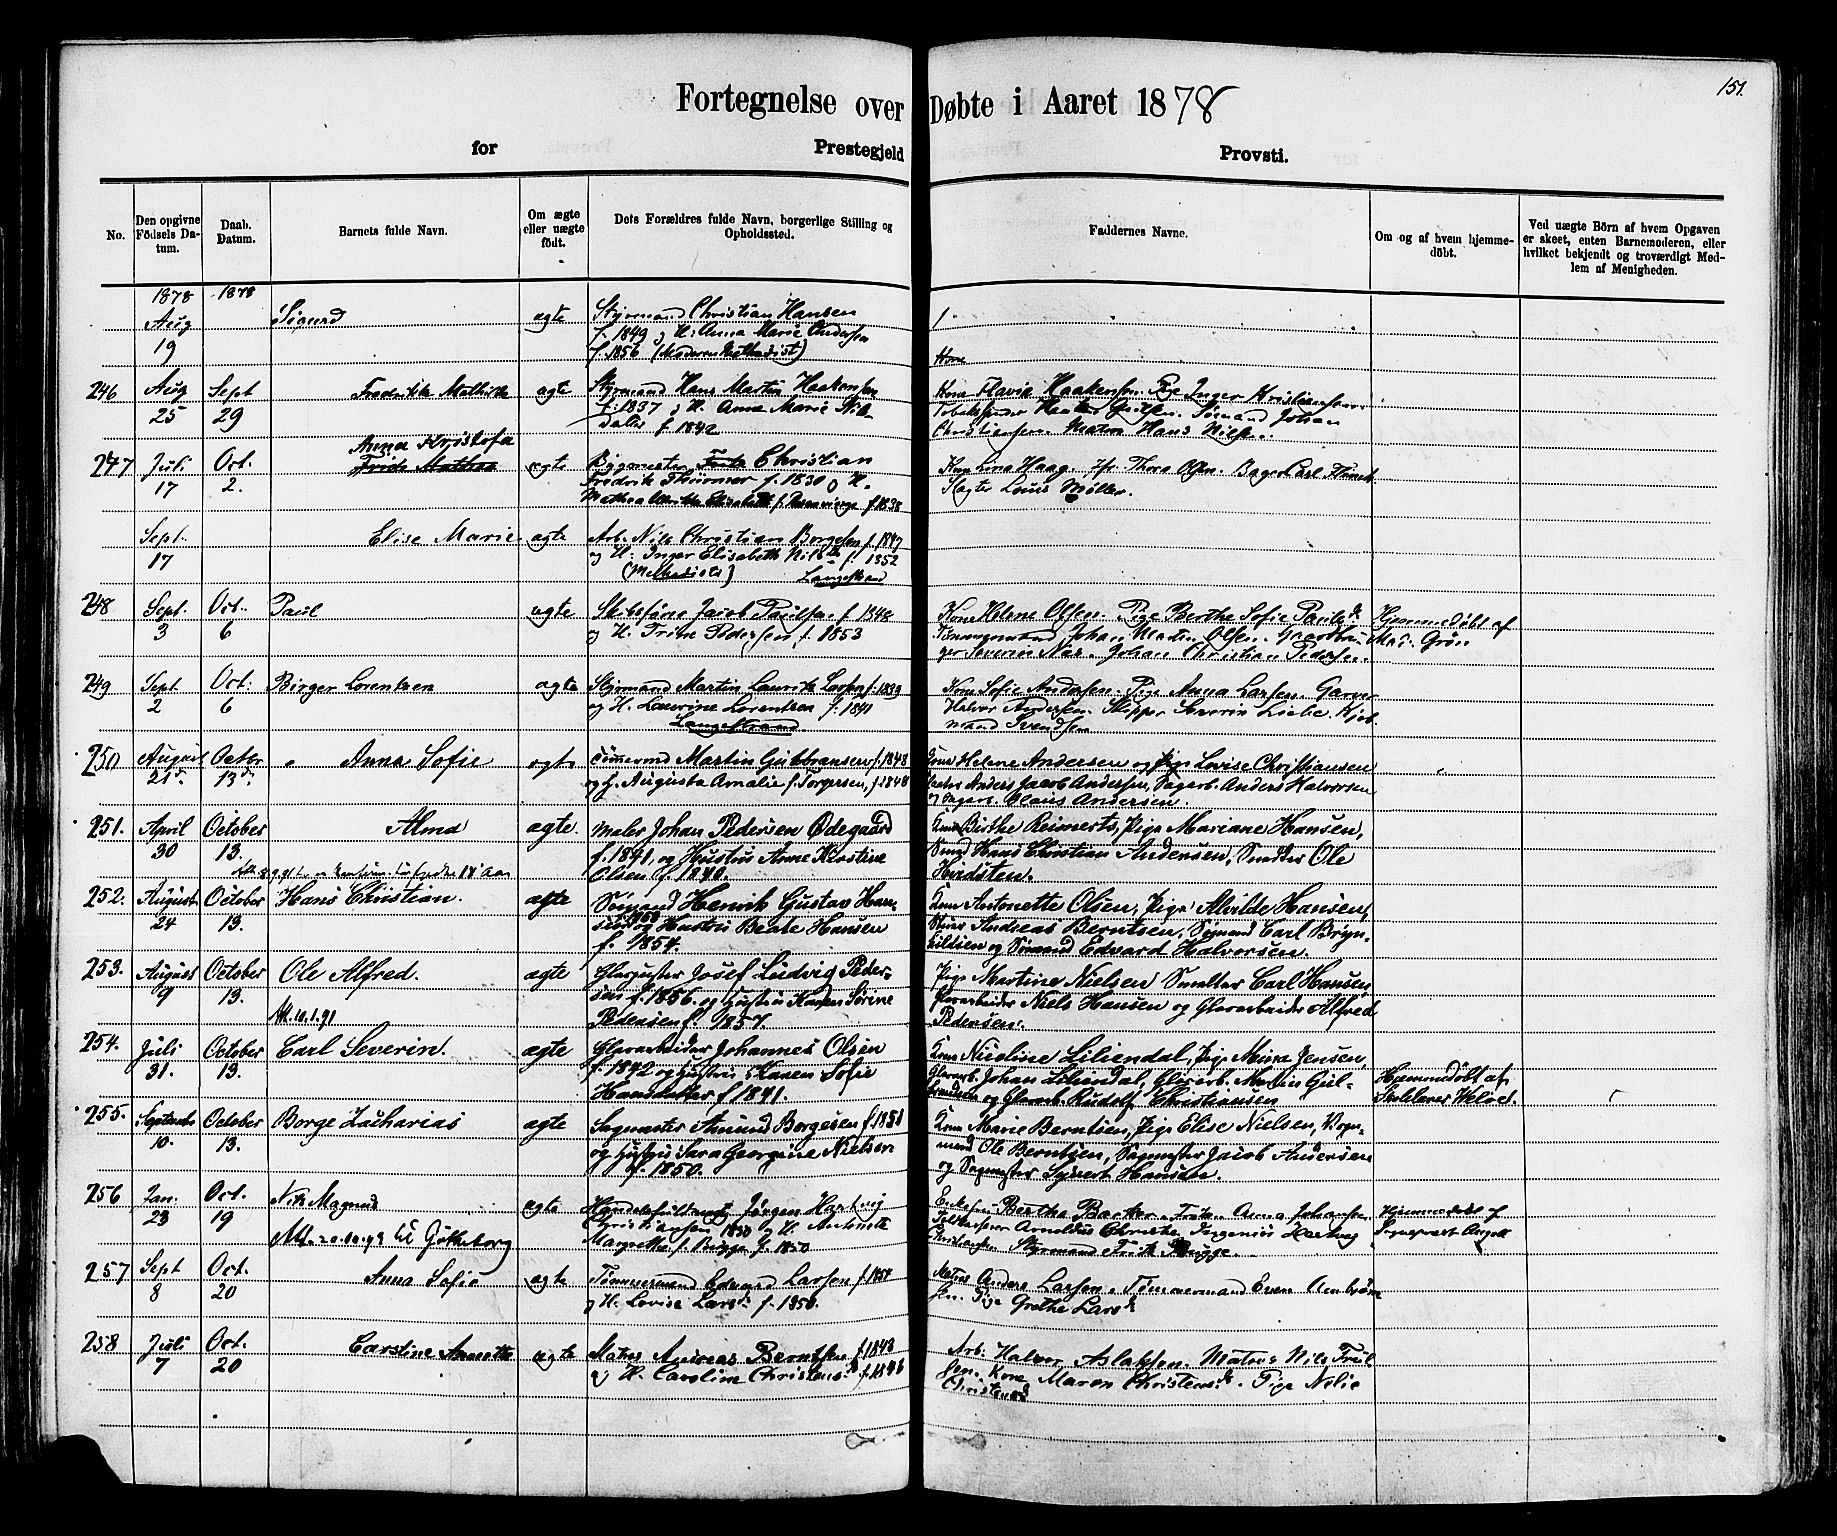 151.
Fortegnelse over Døbte i Aaret 1878
for Prestegjeld Provsti.
No.
Den opgivne Födsels Datum.
Daab. Datum.
Barnets fulde Navn.
Om ægte eller uægte födt.
Dets Forældres fulde Navn, borgerlige Stilling og Opholdssted.
Faddernes Navne.
Om og af hvem hjemmedöbt.
Ved uægte Börn af hvem Opgaven er skeet, enten Barnemoderen, eller hvilket bekjendt og troværdigt Medlem af Menigheden.
1878 1878
Aug 19 Sigurd ægte Styrmand Christian Hansen
f. 1849 og H. Anna Marie Andersen
f. 1856 (Moderen Methodist)
Kone
246 Aug 25 Sept 29 Fredrikke Mathilde ægte Styrmand Hans Martin Haakensen
f. 1837 og H. Anne Marie Nils
datter f. 1842
Kone Flavia Haakensen. Pige Inger Kristiansen.
Sømand Johan
Christiansen. Matros Hans Nilsen.
Anna Kristofa
247 Juli 17 Oct. 2. ægte Bygmester Christian
Fredrik Thurmer f. 1830 og H.
f 1838
Kone Lina Haag. Jfr Thora Olsen. Bager Carl
Slagter Louis Møller.
Sept. 17 Elise Marie ægte Arb. Nils Christian Borgesen f. 1847
og H. Inger Elisabeth Nilsd. f. 1852
(Methodister) Langestrand
248 Sept. 3 Oct. 6 Paul ægte Skibsfører Jacob Paulsen f. 1848
og H. Trine Pedersen f. 1853
Kone Helene Olsen. Pige Berthe Sofie Paulsd.
Tømmermand Johan Martin Olsen. Gaardbru-
ger Severin Næs. Johan Christian Pedersen.
Hjemmedøbt af
Mad. Grøn
249 Sept 2 Oct. 6 Birger Lorentzen ægte Styrmand Martin Laurits Larsen f. 1839
og H. Laurine Lorentzen f. 1840
Langestrand
Kone Sofie Andersen. Pige Anna Larsen. Garver
Halvor Andersen. Skipper Severin Liebe. Kjøb-
mand Svendsen
250 August 21de October 13de Anna Sofie ægte Tømmermd Martin Gulbransen f. 1848
og H. Augusta Amalie f. Torgersen, f. 1848
Kone Helene Andersen og Pige Lovise Christiansen
Anders Jacob Andersen, Sagarb. Anders Halvorsen
og Sagarb. Claus Andersen.
251. April 30 October 13. Alma ægte. Maler Johan Pedersen Ødegaard
f. 1841, og Hustru Anne Kirstine
Olsen f. 1840.
Kone Birthe Reimerts, Pige Mariane Hansen,
Smed Hans Christian Andersen, Smelter Ole
Hvidsten.
252. August 24 October 13. Hans Christian. ægte Sømand Henrik Gustav Han-
sen 1850 og Hustru Beate Hansen
f. 1854.
Kone Antonette Olsen, Pige Alvilde Hansen,
Andreas Berntsen, Sømand Carl Bryn-
hildsen og Sømand Edvard Halvorsen.
253. August 9 October 13. Ole Alfred. ægte Glaspuster Josef Ludvig Peder-
sen f. 1856. og Hustru Karen Sørine
Pedersen f. 1857.
Att. 10.1.91
Pige Martine Nielsen Smelter Carl Hansen
Glasarbeider Niels Hansen og Glasarbeider Alfred
Pedersen.
254. Juli 31. October 13. Carl Severin. ægte Glasarbeider Johannes Olsen
f. 1842 og Hustru Karen Sofie
Hansdatter f 1841.
Kone Nicoline Liliendal, Pige Mina Jensen,
Glasarb. Johan Liliendal, Glasarb. Martin Gul-
brandsen og Glasarb. Rudolf Christiansen
Hjemmedøbt af
Skolelærer Helvel.
255. September 10. October 13. Borge Zacharias ægte Sagmester Amund Borgesen f. 1851
og Hustru Sara Georgine Nielsen
f. 1850.
Kone Marie Berntsen, Pige Elise Nielsen, Vogn-
mand Ole Berntsen, Sagmester Jacob Andersen
og Sagmester Syvert Hansen.
256 Jan. 23 Oct. 19 Nils Magnus ægte Handelsfuldmæg Jørgen Hartvig
Christiansen 1850 og H. Antonette
Margrethe f. Brygge f. 1850
Att. 20.10.93 til Gøtheborg
Enkefru Bertha Backer. Frøken Anna Johansen
Toldkasserer Arnoldus Christie. Ingeniør Hartvig
Christiansen Styrmand Fritz Brygge.
Hjemmedøbt af
Sogneprest
257 Sept 8 Oct. 20 Anna Sofie ægte Tømmermand Edvard Larsen f. 1854
og H. Lovise Larsd. f. 1850.
Matros Anders Larsen. Tømmermand Even Ambrøn
sen. Pige Grethe Larsd
258 Juli 7 Oct. 20 Carstine Annette ægte Matros Andreas Berntsen f 1848
og H. Caroline Christensd f. 1846
Arb. Halvor Aslaksen. Matros Nils
sen. Kone Maren Christensd. Pige Nelie
Christensd